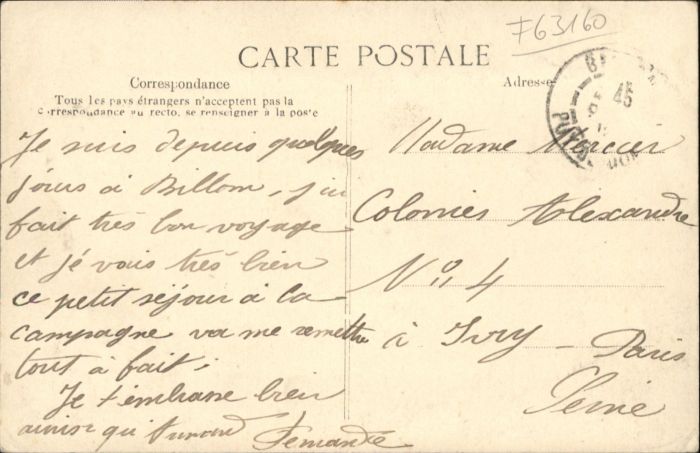 F63160
CARTE POSTALE
Correspondance
Tous les pays étrangers n'acceptent pas la
Correspondance au recto, se renseigner à la poste
Adresse
Je suis depuis quelques
jours à Billom, j'ai
fait très bon voyage
et je vais très bien
ce petit séjour à la
campagne va me remettre
tout à fait.
Je t'embrasse bien
ainsi qu
Fernande
Madame Mercier
Colonies Alexandre
N° 4
à Ivry - Paris
Seine
45